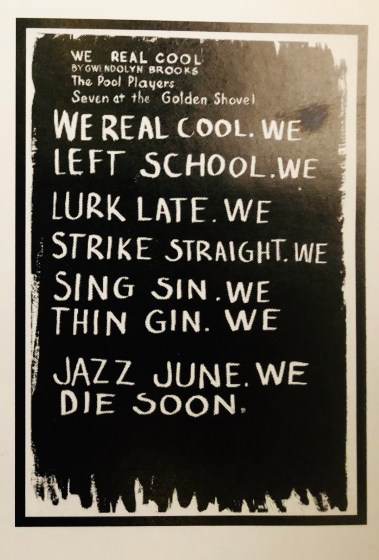 WE REAL COOL
BY GWENDOLYN BROOKS
The Pool Players
Seven at the Golden Shovel
WE REAL COOL. WE
LEFT SCHOOL. WE
LURK LATE. WE
STRIKE STRAIGHT. WE
SING SIN. WE
THIN GIN. WE
JAZZ JUNE. WE
DIE SOON.